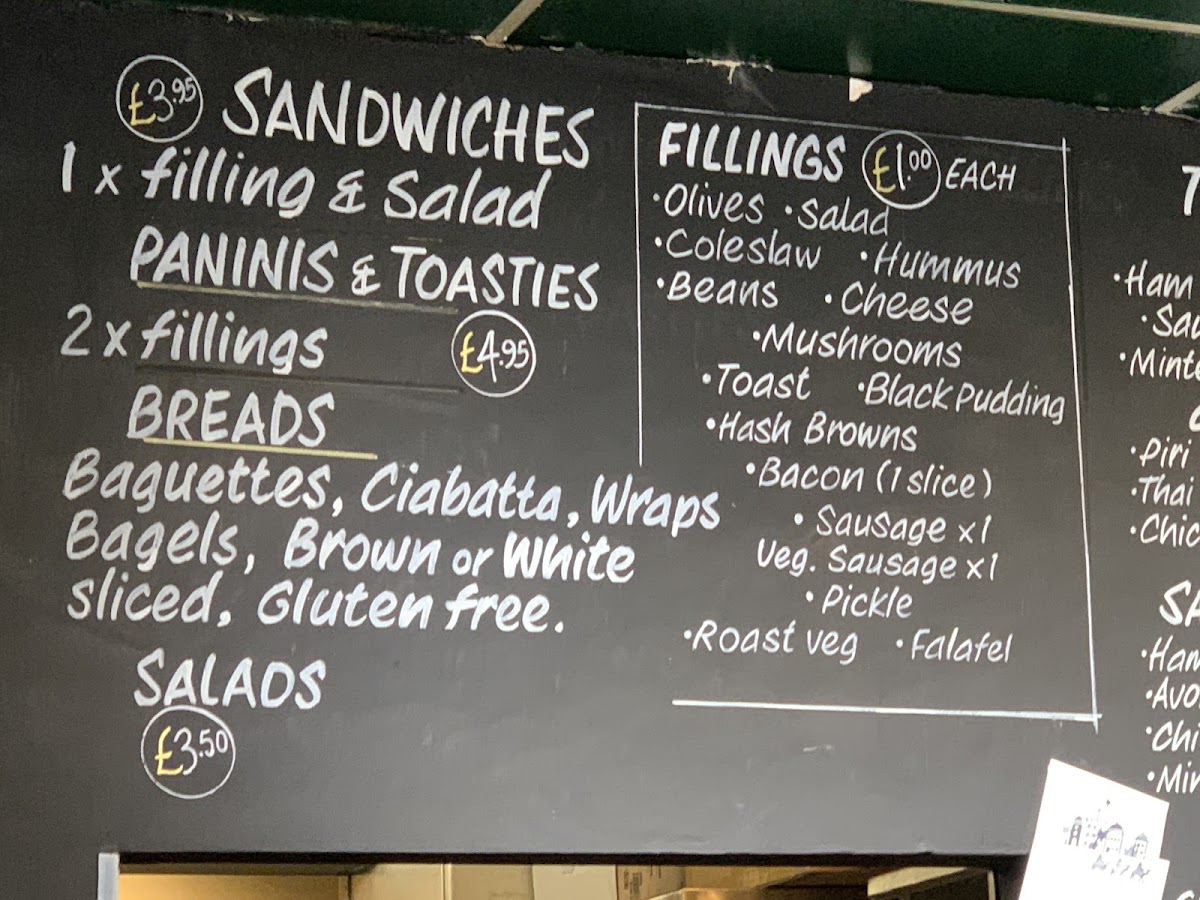 £3.95 SANDWICHES
1 x filling & Salad
PANINIS & TOASTIES
2 x fillings £4.95
BREADS
Baguettes, Ciabatta, Wraps
Bagels, Brown or White
sliced, Gluten free.
SALADS
£3.50
FILLINGS £1.00 EACH
·Olives ·Salad
·Coleslaw ·Hummus
·Beans ·Cheese
·Mushrooms
·Toast ·Black Pudding
·Hash Browns
·Bacon (1 slice)
·Sausage x1
Veg. Sausage x1
·Pickle
·Roast veg ·Falafel
·Ham
·Piri
·Thai